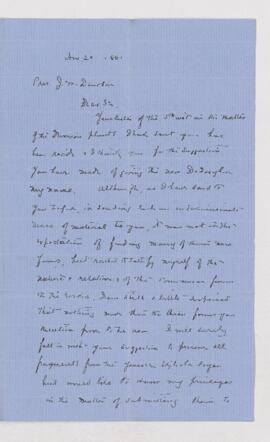 Nov 20 1881
Prof. J. W. Dawson
Dear Sir
Your letter of the 5th inst in the matter
of the Devonian plants I had sent you has
been recd & I thank you for the suggestion
you have made of giving the new
my name. Although, as I have said to
you before, in sending such an indiscriminate
mass of material to you, it was not in the
expectation of finding many of them new
forms, but rather to satisfy myself of the
nature & relations of the commoner forms
to the rocks, I am still a little surprised
that nothing more than the three forms you
mention prove to be new. I will surely
fall in with your suggestion to preserve all
fragments from the Genesee
but would like to know my privileges
in the matter of submitting them to